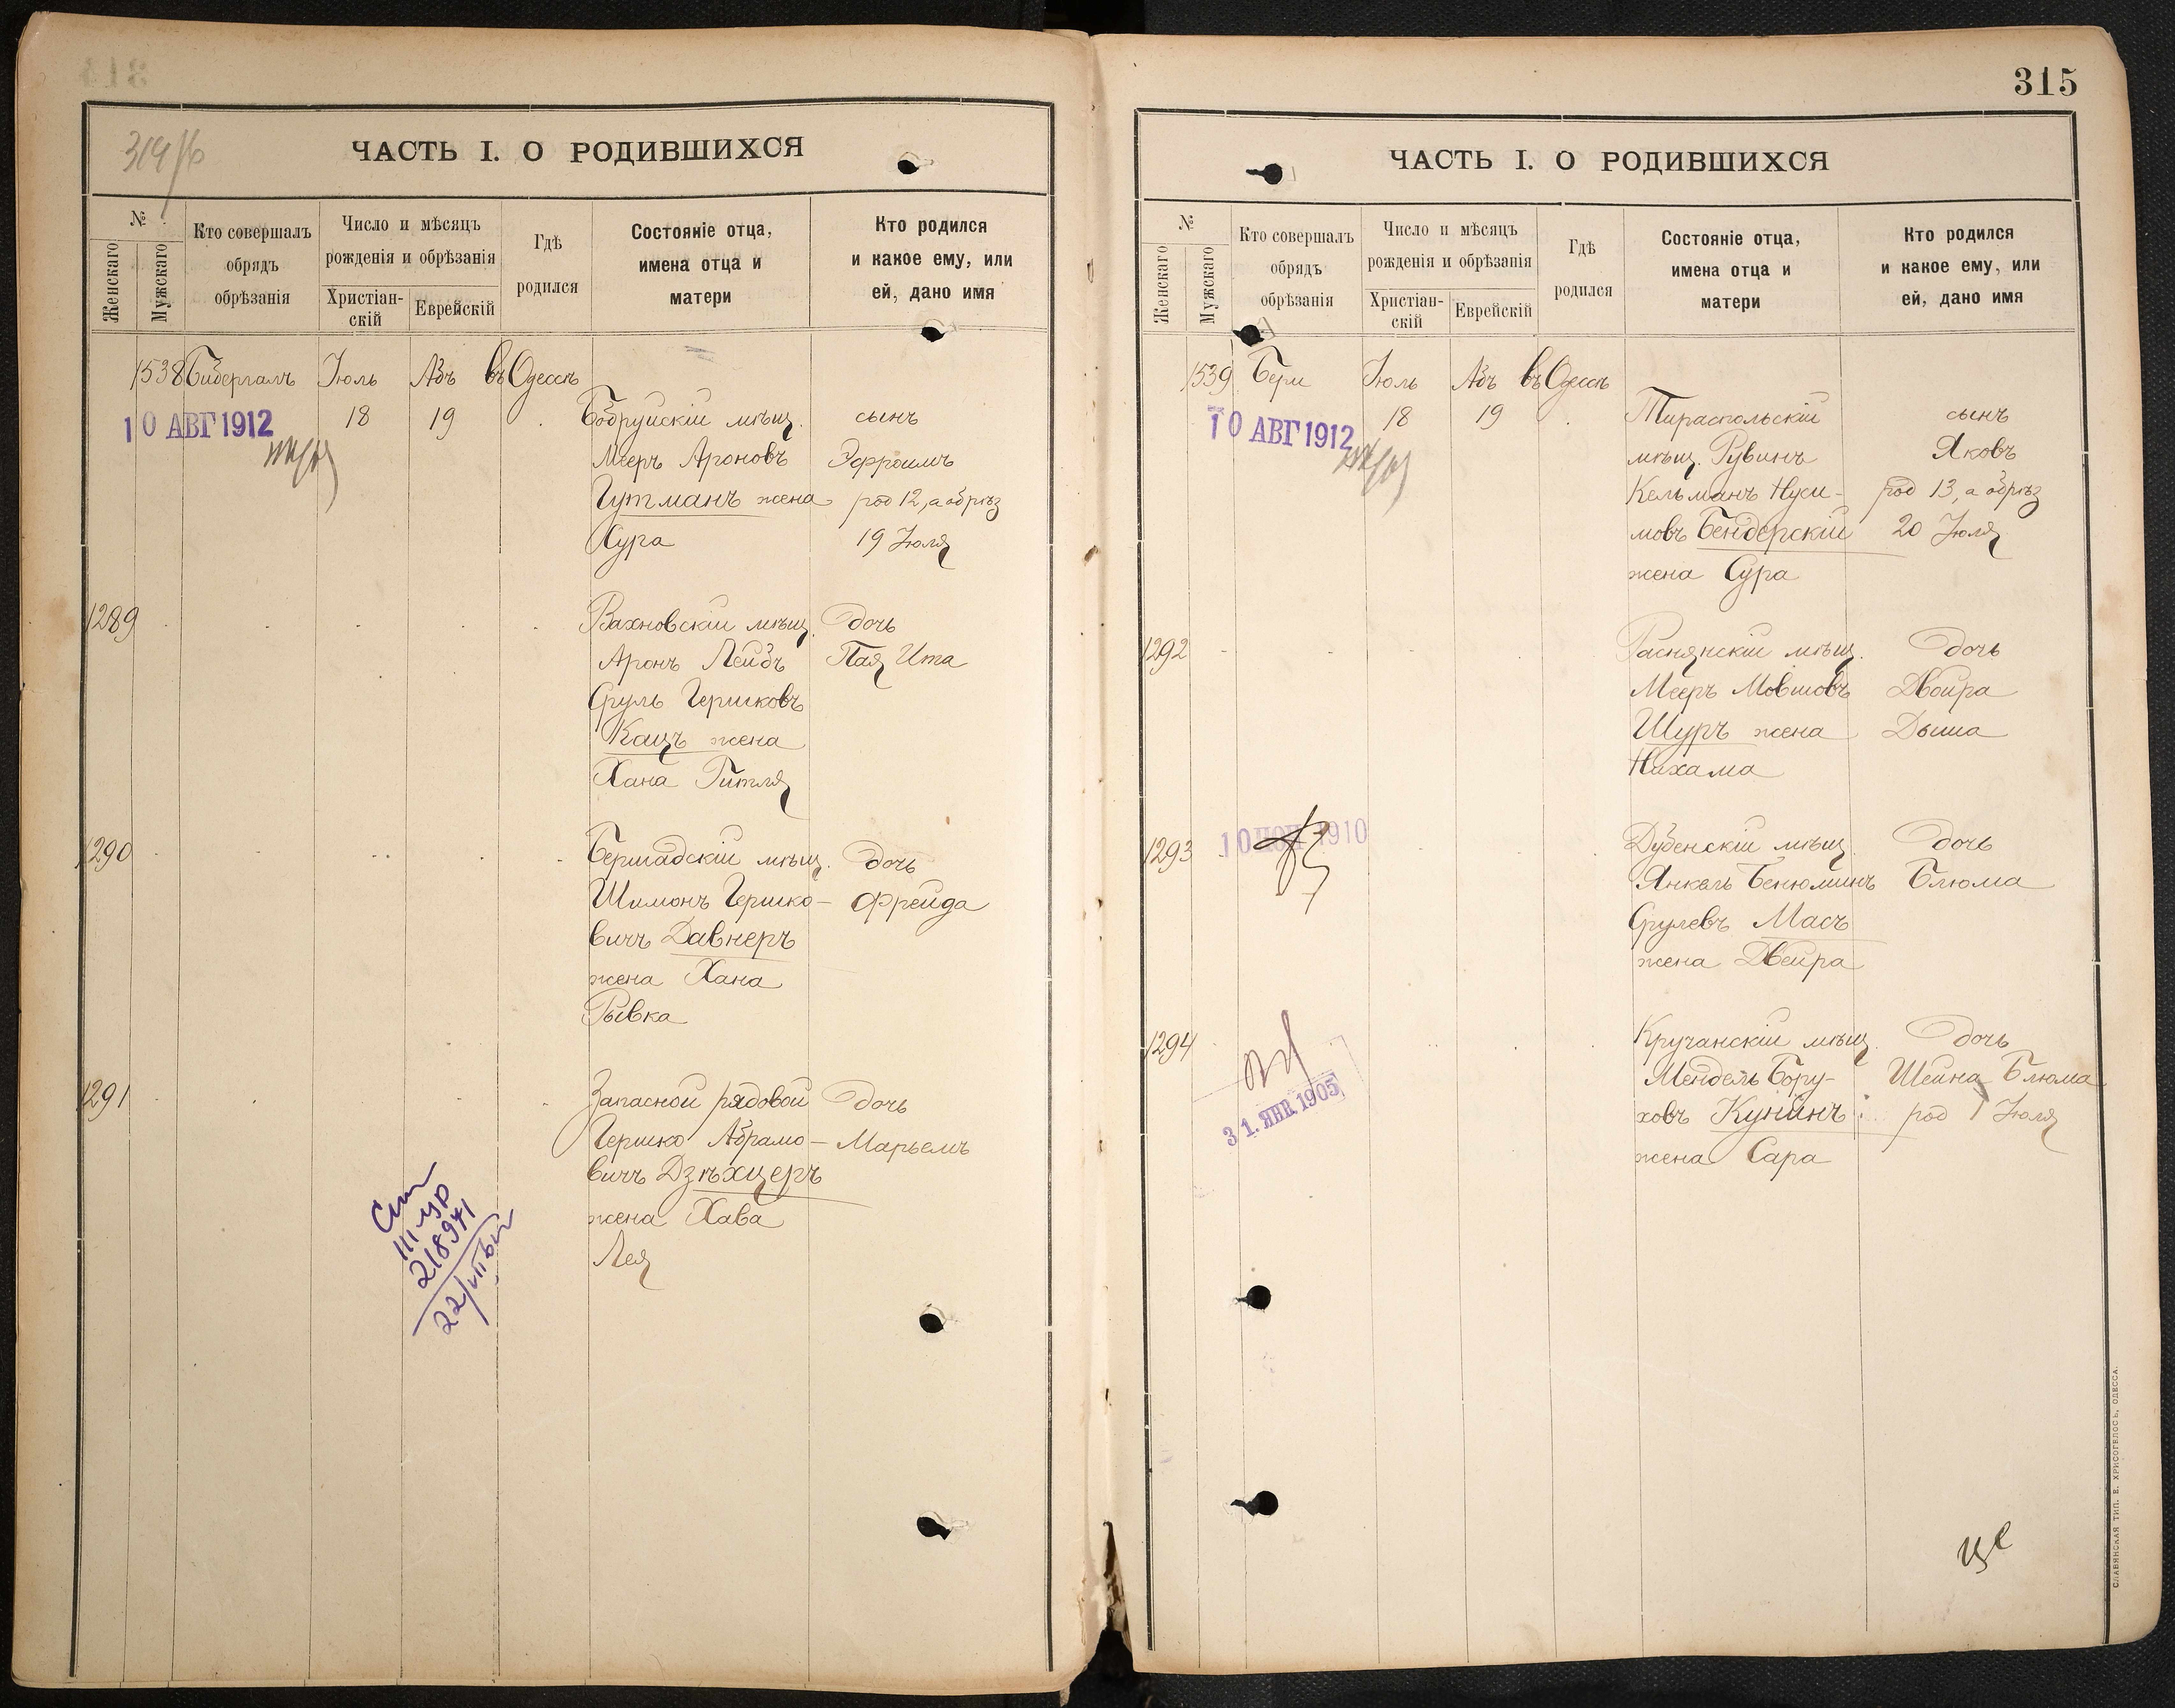 319/б
ЧАСТЬ I. О РОДИВШИХСЯ
№
Женскаго
Мужскаго
Кто совершалъ
обрядъ
обрѣзанія
Число и мѣсяцъ
рожденія и обрѣзанія
Христіан-
скій
Еврейскій
Гдѣ
родился
Состояніе отца,
имена отца и
матери
Кто родился
и какое ему, или
ей, дано имя
1538 Бибергалъ Іюль Абъ въ Одессѣ
10 АВГ 1912
18 19 Бобруйскій мѣщ. сынъ
Мееръ Ароновъ Эфроимъ
Гутманъ жена род 12, а обрѣз
Сура 19 Іюля
1289 Вахновскій мѣщ. дочь
Аронъ Лейбъ Пая Ита
Сруль Гершковъ
Кацъ жена
Хана Гитля
1290 Бершадскій мѣщ. дочь
Шимонъ Гершко- Фрейда
вичъ Давнеръ
жена Хана
Рывка
1291 Запасной рядовой дочь
Гершко Абрамо- Марьемъ
вичъ Дзѣхцеръ
жена Хава
Лея
218971
315
ЧАСТЬ I. О РОДИВШИХСЯ
№
Женскаго
Мужскаго
Кто совершалъ
обрядъ
обрѣзанія
Число и мѣсяцъ
рожденія и обрѣзанія
Христіан-
скій
Еврейскій
Гдѣ
родился
Состояніе отца,
имена отца и
матери
Кто родился
и какое ему, или
ей, дано имя
1539 Бери Іюль Абъ въ Одессѣ
10 АВГ 1912
18 19 Тираспольскій сынъ
мѣщ. Рувинъ Яковъ
Кельманъ Нухи- род 13, а обрѣз
мовъ Бендерскій 20 Іюля
жена Сура
1292 Раснянскій мѣщ. дочь
Мееръ Мовшовъ Двойра
Шуръ жена Дыша
Нихама
1293 Дубенскій мѣщ. дочь
Янкель Бенюминъ Блюма
Срулевъ Масъ
жена Двейра
1294 Кручанскій мѣщ. дочь
31. ЯНВ. 1905
Мендель Бору- Шейна Блюма
ховъ Кунинъ род 1 Іюля
жена Сара
СЛАВЯНСКАЯ ТИП. Е. ХРИСОГЕЛОСЪ, ОДЕССА.